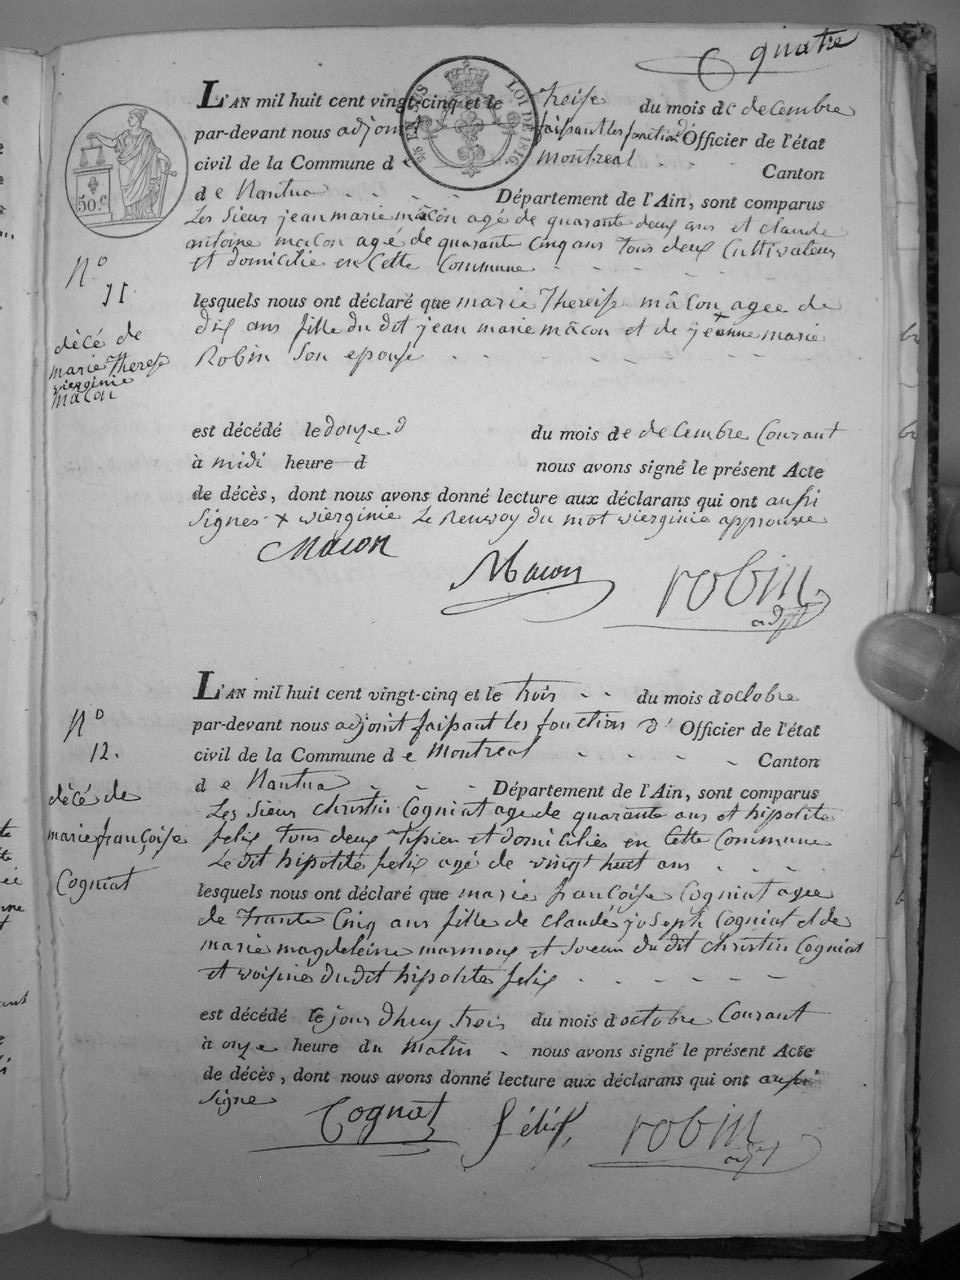 quatre
L'AN mil huit cent vingt-cinq et le treise du mois de decembre
par-devant nous adjoint faisant les fonctions d' Officier de l'état
civil de la Commune de montreal Canton
de Nantua Département de l'Ain, sont comparus
Les Sieurs jean marie mâcon agé de quarante deux ans et claude
antoine macon agé de quarante cinq ans tous deux Cultivateurs
et domicilié en cette Commune
N° 11
lesquels nous ont déclaré que marie Thereise mâcon agee de
dix ans fille du dit jean marie mâcon et de jeanne marie
Robin son epouse
décé de
marie Therese
vierginie
macon
est décédé le douze du mois de decembre Courant
à midi heure d nous avons signé le présent Acte
de décès, dont nous avons donné lecture aux déclarans qui ont aussi
signes + vierginie Le Renvoy du mot vierginie approuvée
Macon
Macon
robin
adjt
50 c.
95 EN SUS
LOI DE 1816
L'AN mil huit cent vingt-cinq et le trois du mois d'octobre
par-devant nous adjoint faisant les fonctions d' Officier de l'état
civil de la Commune de Montreal Canton
de Nantua Département de l'Ain, sont comparus
N° 12.
Les Sieur christin Cogniat age de quarante ans et hipolite
felix tous deux en cette Commune
Le dit hipolite felix agé de vingt huit ans
décé de
marie françoise
Cogniat
lesquels nous ont déclaré que marie françoise Cogniat agee
de Trante Cinq ans fille de claude joseph Cogniat et de
marie magdeleine marmoux et soeur du dit christin Cogniat
et voisine du dit hipolite felix
est décédé le jour d'huy trois du mois d'octobre Courant
à onze heure du matin nous avons signé le présent Acte
de décès, dont nous avons donné lecture aux déclarans qui ont aussi
signe
Cognat
félix
robin
adjt